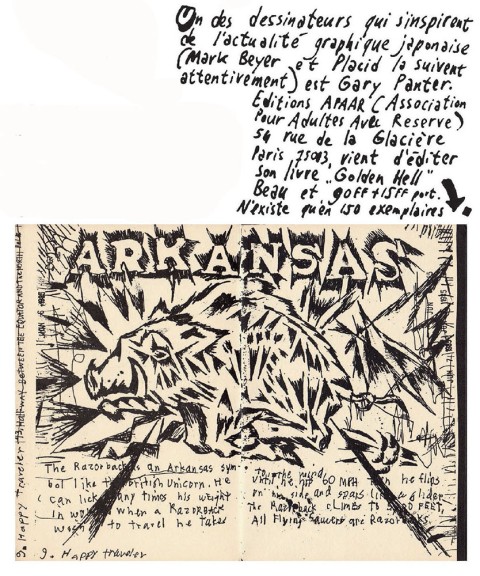 Un des dessinateurs qui s'inspirent
de l'actualité graphique japonaise
(Mark Beyer et Placid la suivent
attentivement) est Gary Panter.
Editions APAAR (Association
Pour Adultes Avec Reserve)
54 rue de la Glacière
Paris 75013, vient d'éditer
son livre "Golden Hell"
Beau et 90FF +15FF port.
N'existe qu'en 150 exemplaires
ARKANSAS
The Razorback is an Arkansas sym-
bol like the British Unicorn. He
can lick any times his weight
in when a RAZORBACK
to travel he takes
to the road
until he hits 60 MPH he flips
on his side and soars like a glider
The Razorback climbs to FEET,
All Flying saucers are Razorbacks.
9. Happy traveler
9. Happy traveler Halfway between the equator and the north pole